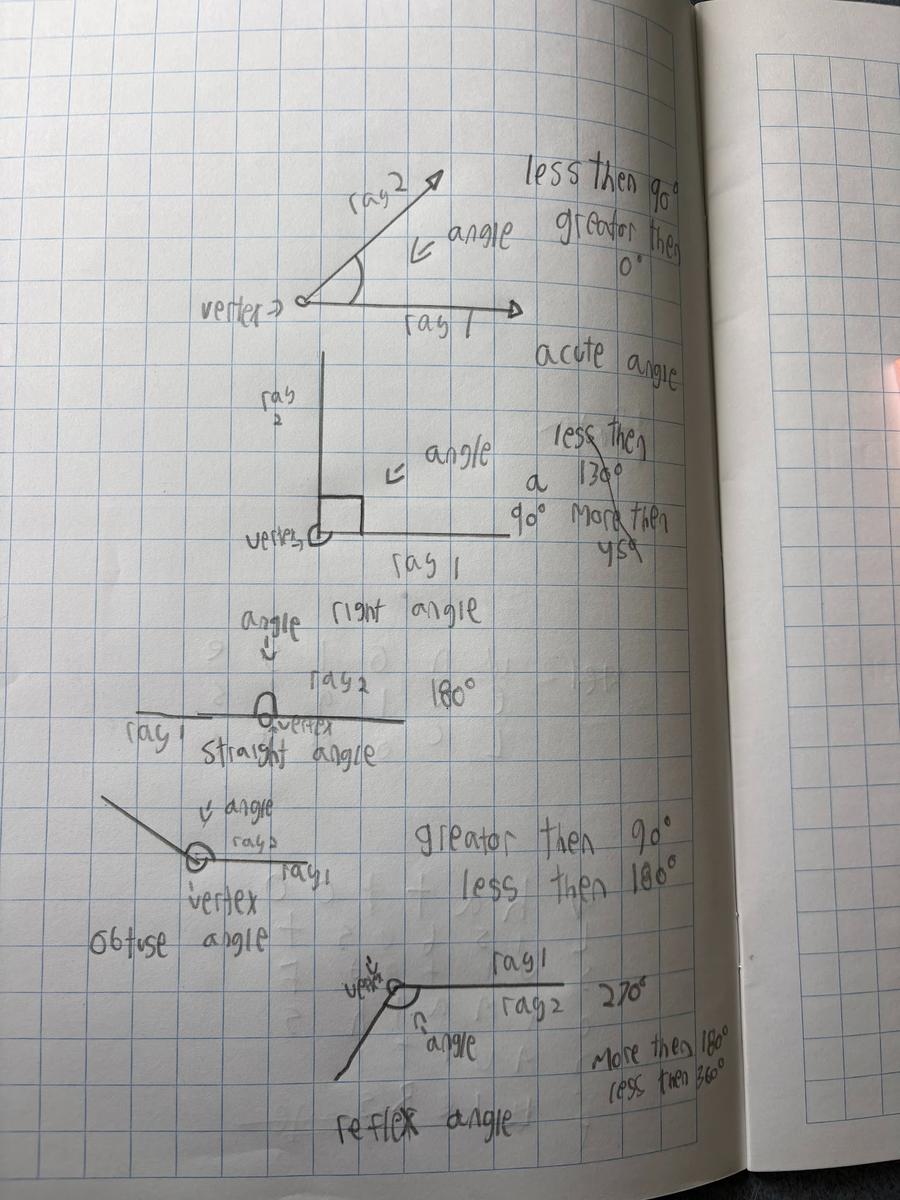 ray 2
less then 90°
greator then
0°
angle
vertex
ray 1
acute angle
ray
2
less then
130°
angle
a
90° more then
vertex
ray 1
right angle
angle
ray 2
180°
ray 1
vertex
straight angle
angle
ray 2
ray 1
vertex
greator then 90°
less then 180°
obtuse angle
ray 1
vertex
ray 2
270°
angle
more then 180°
less then 360°
reflex angle